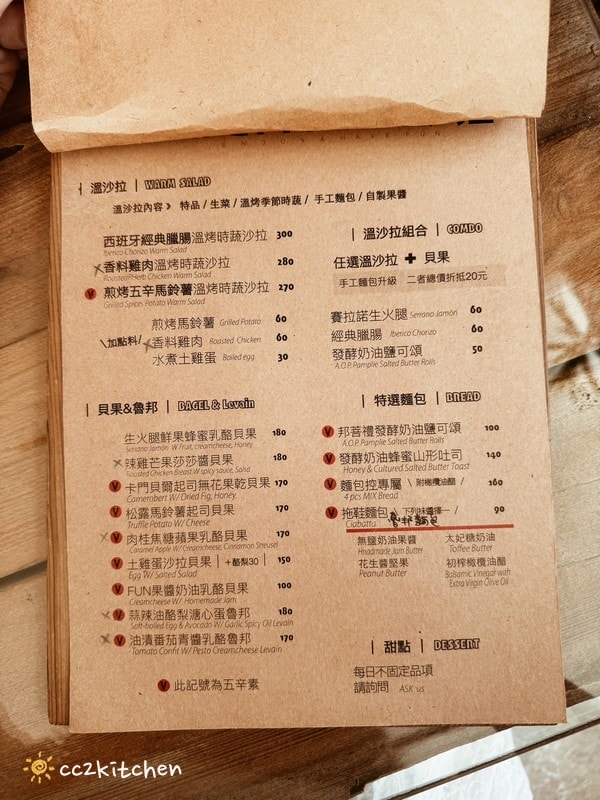 溫沙拉 | WARM SALAD
溫沙拉內容 › 特品 / 生菜 / 溫烤季節時蔬 / 手工麵包 / 自製果醬
西班牙經典臘腸溫烤時蔬沙拉 300
Iberico Chorizo Warm Salad
香料雞肉溫烤時蔬沙拉 280
Roasted/Herb Chicken Warm Salad
V 煎烤五辛馬鈴薯溫烤時蔬沙拉 270
Grilled Spices Potato Warm Salad
\加點料/
煎烤馬鈴薯 Grilled Potato 60
香料雞肉 Roasted Chicken 60
水煮土雞蛋 Boiled egg 30
| 溫沙拉組合 | COMBO
任選溫沙拉 + 貝果
手工麵包升級 二者總價折抵20元
賽拉諾生火腿 Serrano Jamón 60
經典臘腸 Iberico Chorizo 60
發酵奶油鹽可頌 50
A.O.P. Pamplie Salted Butter Rolls
| 貝果&魯邦 | BAGEL & Levain
生火腿鮮果蜂蜜乳酪貝果 180
Serrano Jamon W/ Fruit, creamcheese, Honey
辣雞芒果莎莎醬貝果 180
Roasted Chicken Breast W/ spicy sauce, Salsa
V 卡門貝爾起司無花果乾貝果 170
Camembert W/ Dried Fig, Honey
V 松露馬鈴薯起司貝果 170
Truffle Potato W/ Cheese
V 肉桂焦糖蘋果乳酪貝果 170
Caramel Apple W/ Creamcheese, Cinnamon Streusel
V 土雞蛋沙拉貝果 | +酪梨30 | 150
Egg W/ Salted Salad
V FUN果醬奶油乳酪貝果 100
Creamcheese W/ Homemade Jam
V 蒜辣油酪梨溏心蛋魯邦 180
Soft-boiled Egg & Avocado W/ Garlic Spicy Oil Levain
V 油漬番茄青醬乳酪魯邦 170
Tomato Confit W/ Pesto Creamcheese Levain
V 此記號為五辛素
| 特選麵包 | BREAD
V 邦菩禮發酵奶油鹽可頌 100
A.O.P. Pamplie Salted Butter Rolls
V 發酵奶油蜂蜜山形吐司 140
Honey & Cultured Salted Butter Toast
V 麵包控專屬 \ 附橄欖油醋 / 160
4 pcs MIX Bread
V 拖鞋麵包 \ 下列味醬擇一 / 90
Ciabatta 魯邦麵包
無鹽奶油果醬
Hnadmade Jam Butter
太妃糖奶油
Toffee Butter
花生醬堅果
Peanut Butter
初榨橄欖油醋
Balsamic Vinegar with
Extra Virgin Olive Oil
| 甜點 | DESSERT
每日不固定品項
請詢問 ASK us
cc2kitchen